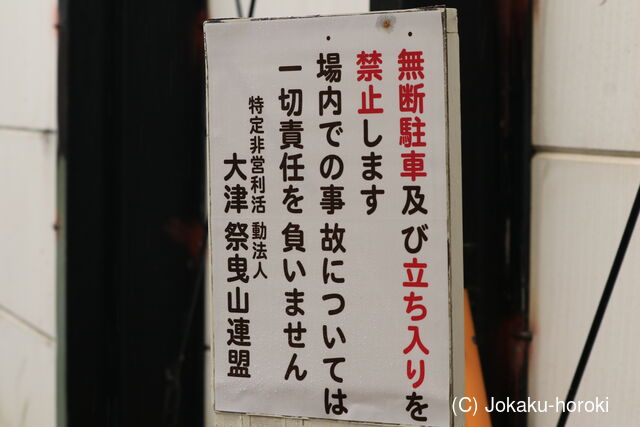 ・無断駐車及び立ち入りを
禁止します
・場内での事故については
一切責任を負いません
特定非営利活動法人
大津祭曳山連盟
(C) Jokaku-horoki